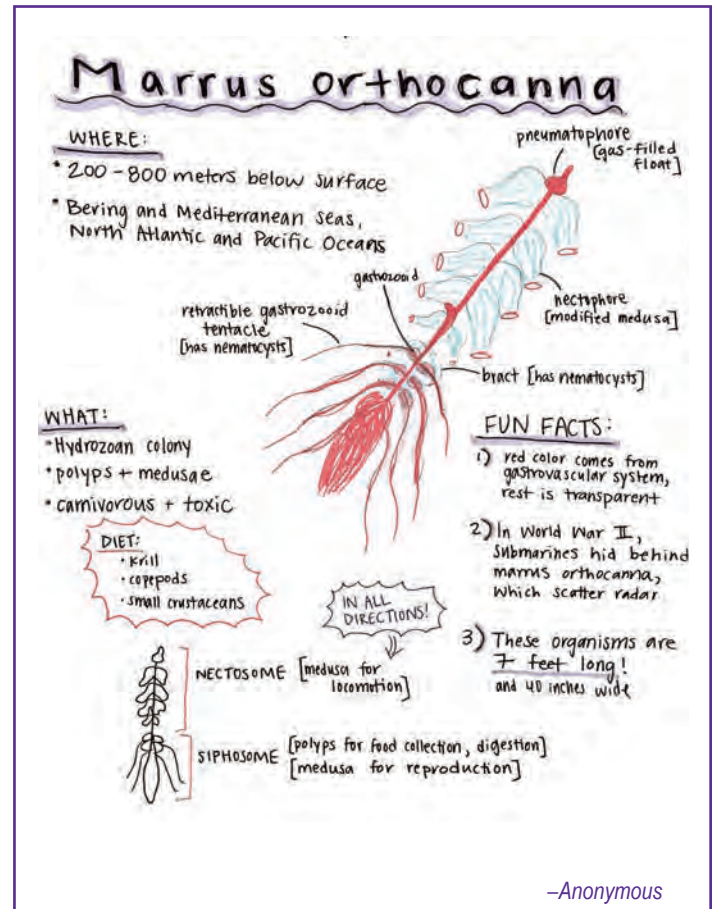 Marrus orthocanna
WHERE:
• 200-800 meters below surface
• Bering and Mediterranean Seas,
North Atlantic and Pacific Oceans
pneumatophore
[gas-filled
float]
gastrozooid
nectophore
[modified medusa]
retractible gastrozooid
tentacle
[has nematocysts]
bract [has nematocysts]
WHAT:
• Hydrozoan colony
• polyps + medusae
• carnivorous + toxic
DIET:
• Krill
• copepods
• small crustaceans
FUN FACTS:
1) red color comes from
gastrovascular system,
rest is transparent
2) In World War II,
submarines hid behind
marrus orthocanna,
which scatter radar
3) These organisms are
7 feet long!
and 40 inches wide
IN ALL
DIRECTIONS!
NECTOSOME [medusa for
locomotion]
SIPHOSOME [polyps for food collection, digestion]
[medusa for reproduction]
–Anonymous